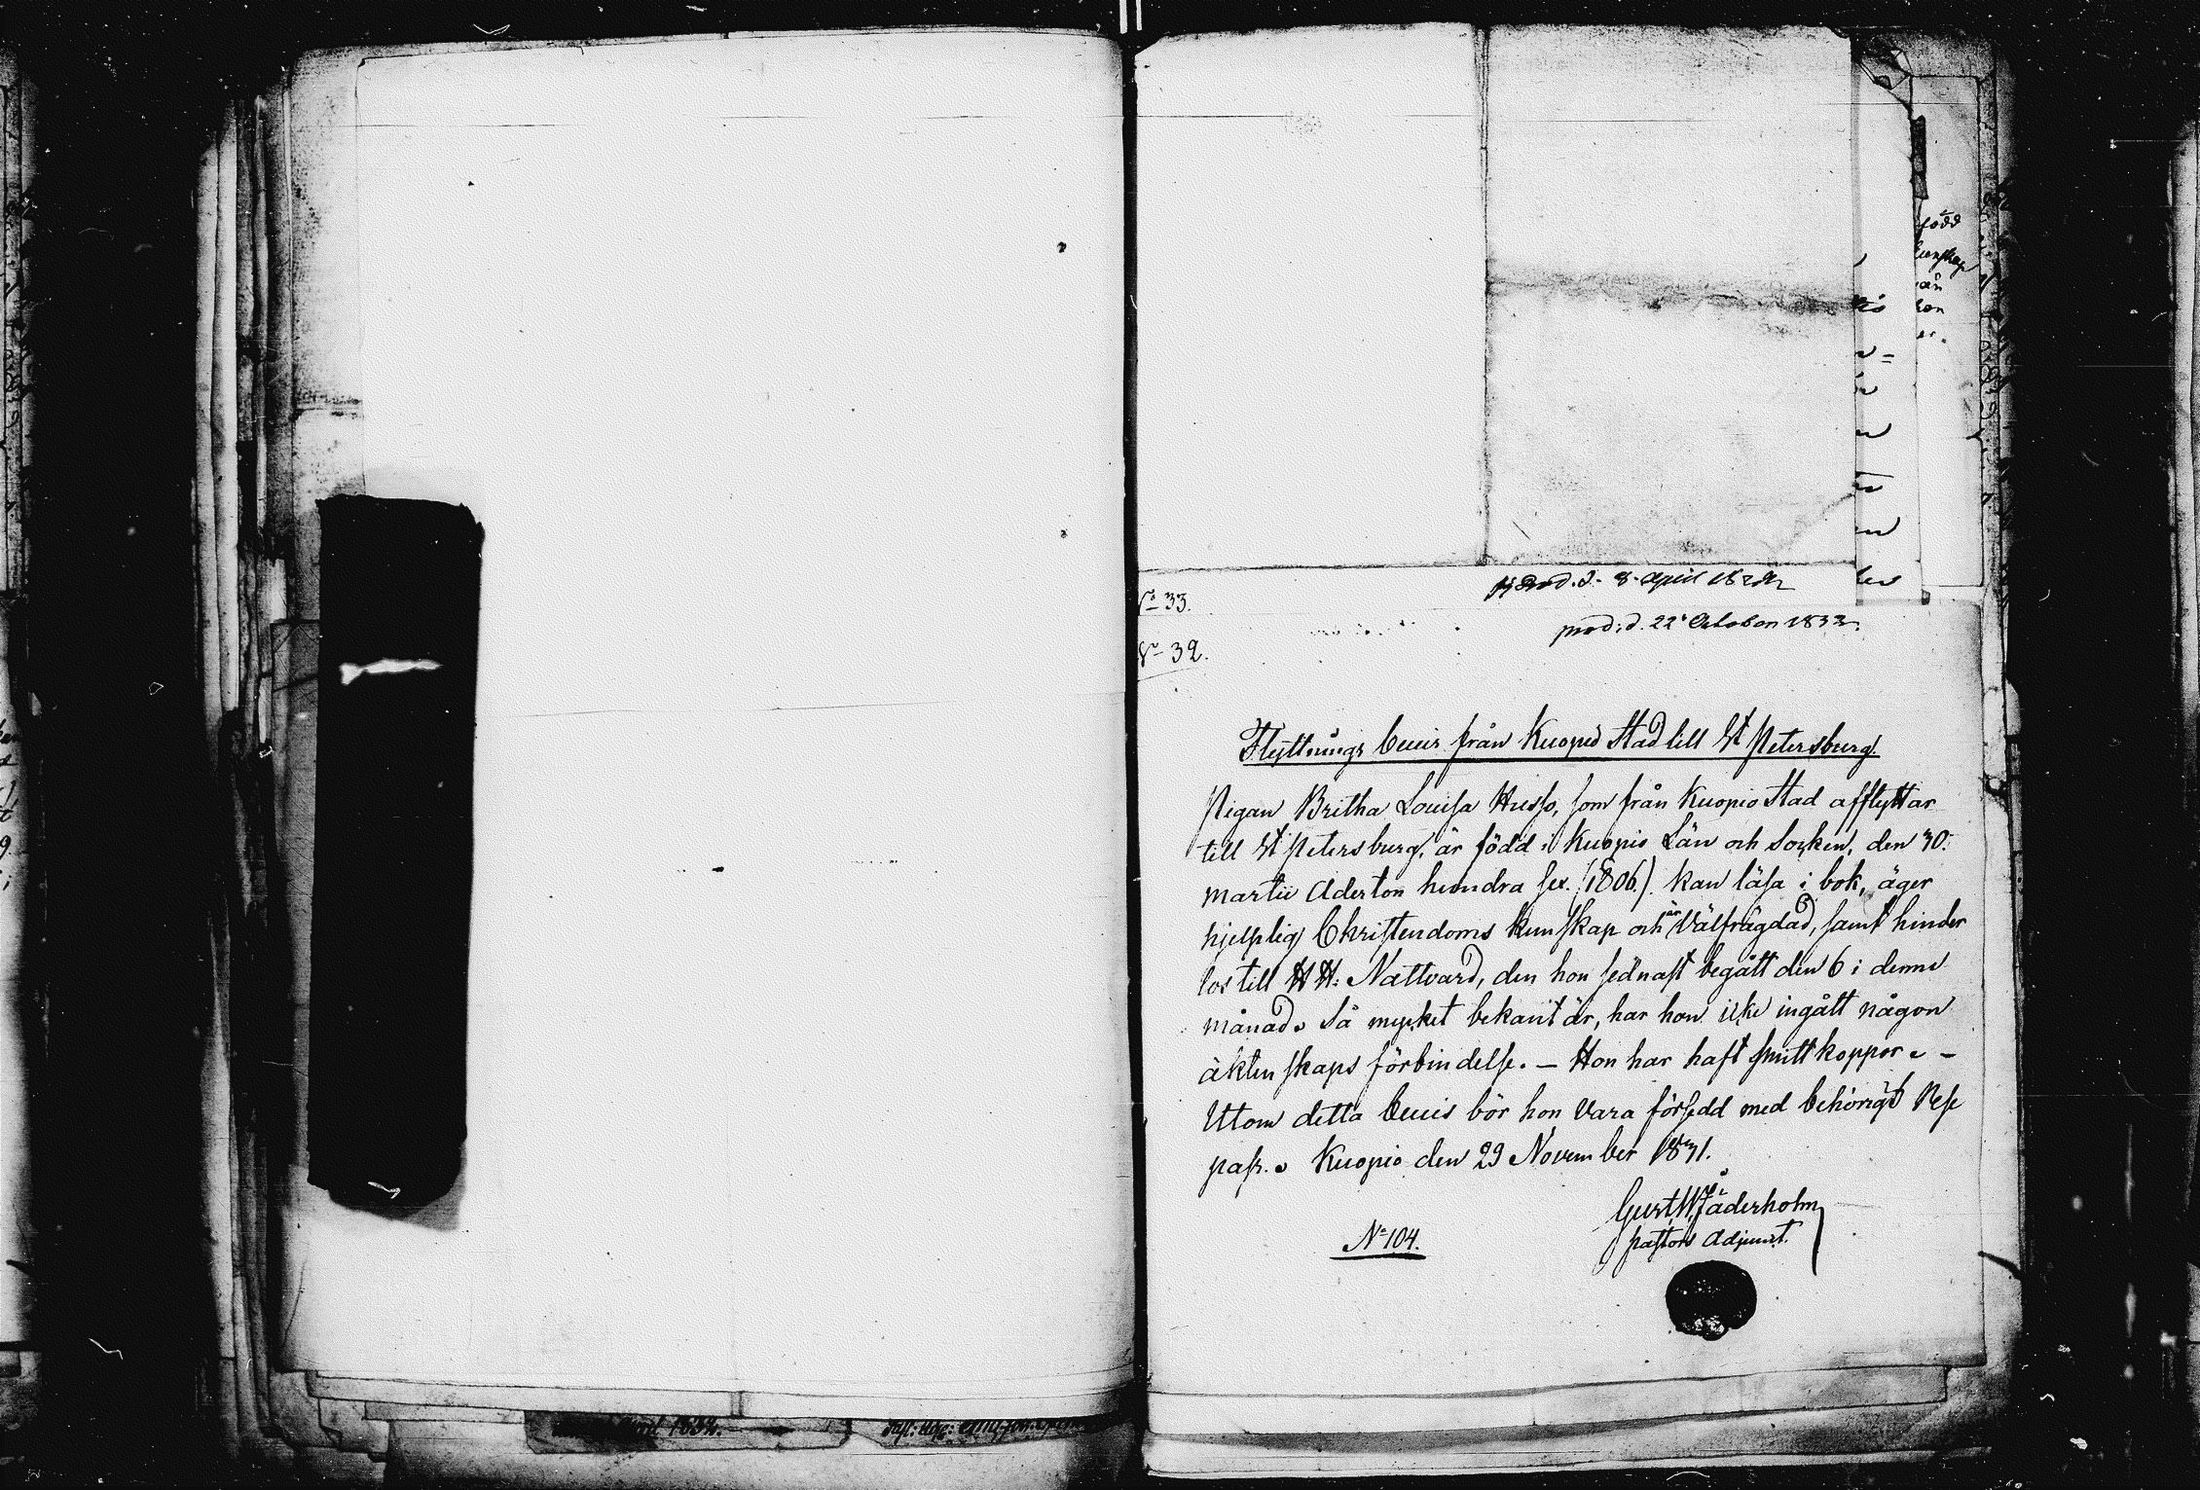 No 33.
prod. d. 8 April 1832
No 32.
prod: d. 22 October 1832.
Flyttnings bevis från Kuopio Stad till St Petersburg.
Pigan Britha Louisa Husso, som från Kuopio Stad afflyttar
till St Petersburg, är född i Kuopio Län och Socken, den 30.
Martii Aderton hundra sex. (1806.). kan läsa i bok, äger
hjelplig Christendoms kunskap och är Välfrägdad, samt hinder
lös till H H: Nattvard, den hon sednast begått den 6 i denne
månad. Så mycket bekant är, har hon icke ingått någon
äktenskaps förbindelse. — Hon har haft smittkoppor. —
Utom detta bevis bör hon vara försedd med behörigt Rese
pass. Kuopio den 29 November 1831.
Gust. W. Jäderholm
Pastors Adjunct.
No 104.
född
kunskap
en
ler
April 1832.